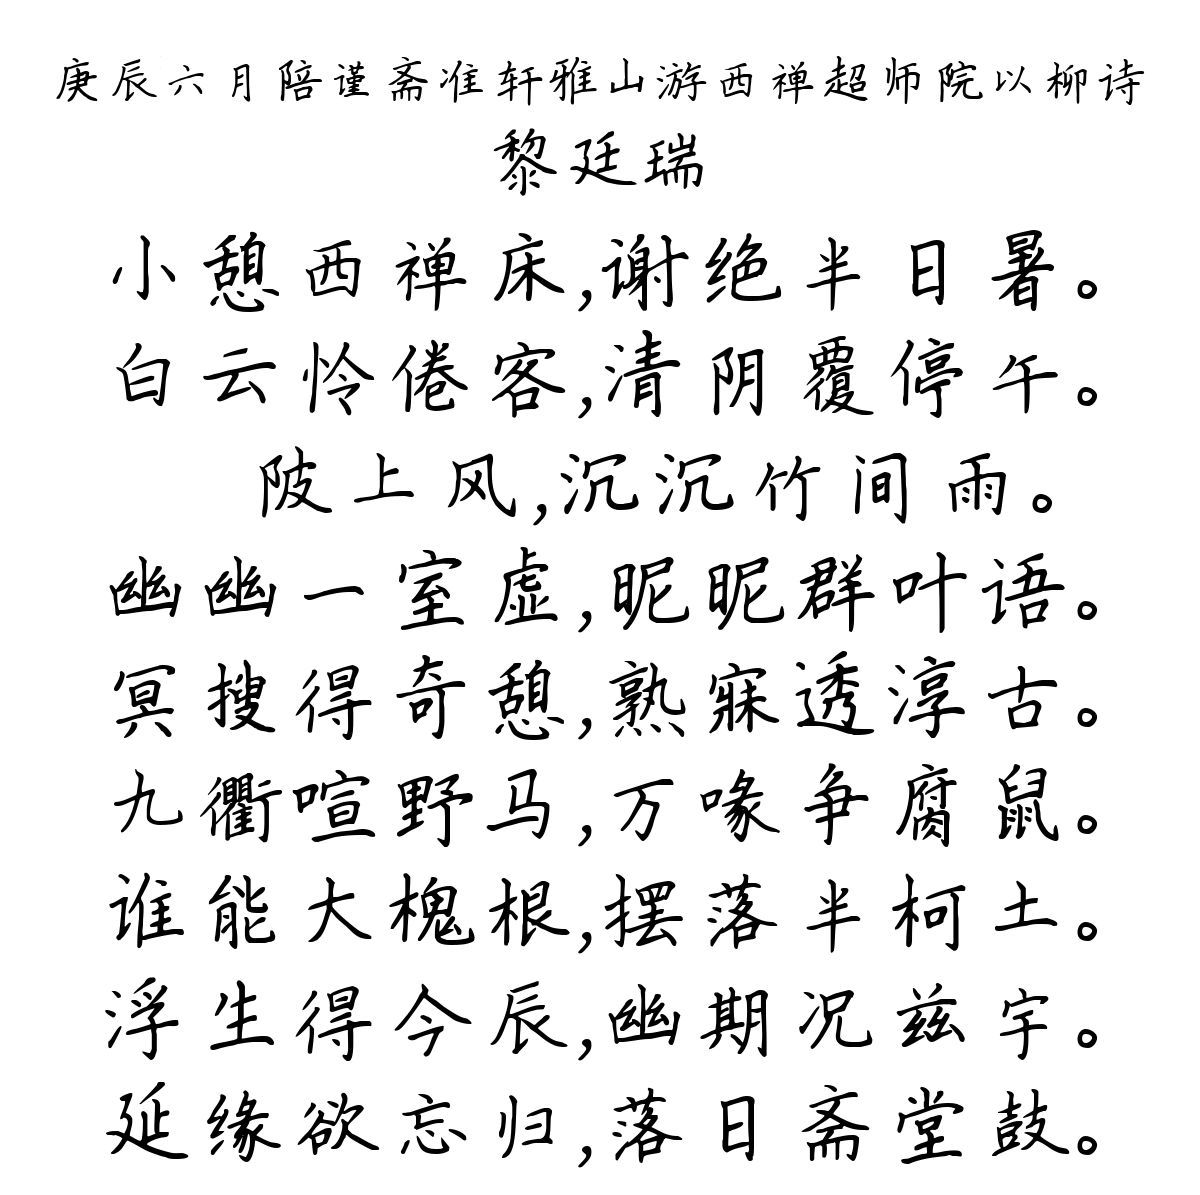 庚辰六月陪谨斋准轩雅山游西禅超师院以柳诗
黎廷瑞
小憩西禅床,谢绝半日暑。
白云怜倦客,清阴覆停午。
陂上风,沉沉竹间雨。
幽幽一室虚,昵昵群叶语。
冥搜得奇憩,熟寐透淳古。
九衢喧野马,万喙争腐鼠。
谁能大槐根,摆落半柯土。
浮生得今辰,幽期况兹宇。
延缘欲忘归,落日斋堂鼓。